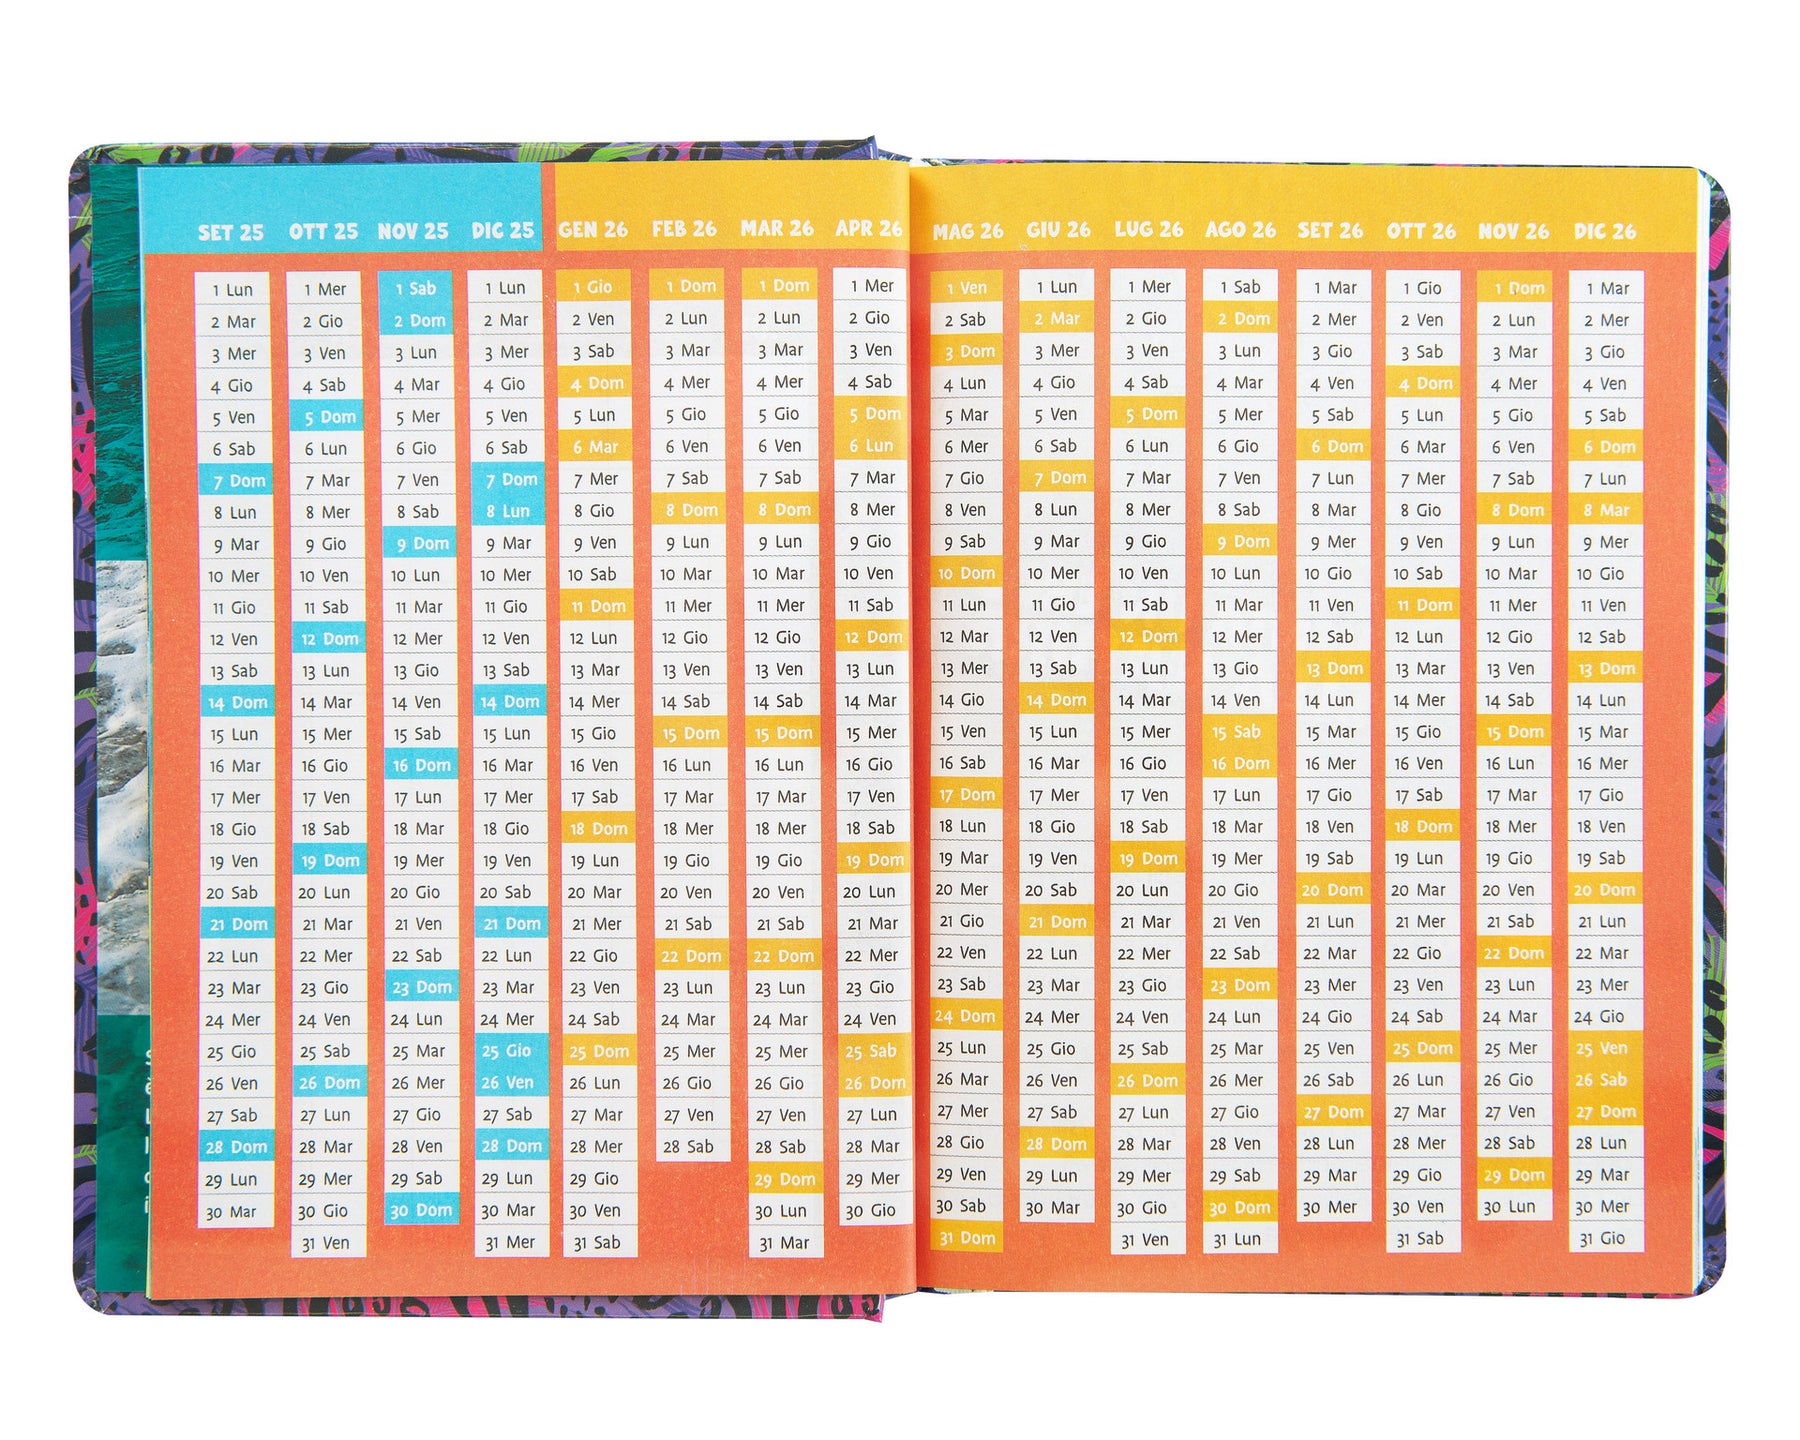 SET 25 OTT 25 NOV 25 DIC 25 GEN 26 FEB 26 MAR 26 APR 26 MAG 26 GIU 26 LUG 26 AGO 26 SET 26 OTT 26 NOV 26 DIC 26
1 Lun 1 Mer 1 Sab 1 Lun 1 Gio 1 Dom 1 Dom 1 Mer 1 Ven 1 Lun 1 Mer 1 Sab 1 Mar 1 Gio 1 Dom 1 Mar
2 Mar 2 Gio 2 Dom 2 Mar 2 Ven 2 Lun 2 Lun 2 Gio 2 Sab 2 Mar 2 Gio 2 Dom 2 Mer 2 Ven 2 Lun 2 Mer
3 Mer 3 Ven 3 Lun 3 Mer 3 Sab 3 Mar 3 Mar 3 Ven 3 Dom 3 Mer 3 Ven 3 Lun 3 Gio 3 Sab 3 Mar 3 Gio
4 Gio 4 Sab 4 Mar 4 Gio 4 Dom 4 Mer 4 Mer 4 Sab 4 Lun 4 Gio 4 Sab 4 Mar 4 Ven 4 Dom 4 Mer 4 Ven
5 Ven 5 Dom 5 Mer 5 Ven 5 Lun 5 Gio 5 Gio 5 Dom 5 Mar 5 Ven 5 Dom 5 Mer 5 Sab 5 Lun 5 Gio 5 Sab
6 Sab 6 Lun 6 Gio 6 Sab 6 Mar 6 Ven 6 Ven 6 Lun 6 Mer 6 Sab 6 Lun 6 Gio 6 Dom 6 Mar 6 Ven 6 Dom
7 Dom 7 Mar 7 Ven 7 Dom 7 Mer 7 Sab 7 Sab 7 Mar 7 Gio 7 Dom 7 Mar 7 Ven 7 Lun 7 Mer 7 Sab 7 Lun
8 Lun 8 Mer 8 Sab 8 Lun 8 Gio 8 Dom 8 Dom 8 Mer 8 Ven 8 Lun 8 Mer 8 Sab 8 Mar 8 Gio 8 Dom 8 Mar
9 Mar 9 Gio 9 Dom 9 Mar 9 Ven 9 Lun 9 Lun 9 Gio 9 Sab 9 Mar 9 Gio 9 Dom 9 Mer 9 Ven 9 Lun 9 Mer
10 Mer 10 Ven 10 Lun 10 Mer 10 Sab 10 Mar 10 Mar 10 Ven 10 Dom 10 Mer 10 Ven 10 Lun 10 Gio 10 Sab 10 Mar 10 Gio
11 Gio 11 Sab 11 Mar 11 Gio 11 Dom 11 Mer 11 Mer 11 Sab 11 Lun 11 Gio 11 Sab 11 Mar 11 Ven 11 Dom 11 Mer 11 Ven
12 Ven 12 Dom 12 Mer 12 Ven 12 Lun 12 Gio 12 Gio 12 Dom 12 Mar 12 Ven 12 Dom 12 Mer 12 Sab 12 Lun 12 Gio 12 Sab
13 Sab 13 Lun 13 Gio 13 Sab 13 Mar 13 Ven 13 Ven 13 Lun 13 Mer 13 Sab 13 Lun 13 Gio 13 Dom 13 Mar 13 Ven 13 Dom
14 Dom 14 Mar 14 Ven 14 Dom 14 Mer 14 Sab 14 Sab 14 Mar 14 Gio 14 Dom 14 Mar 14 Ven 14 Lun 14 Mer 14 Sab 14 Lun
15 Lun 15 Mer 15 Sab 15 Lun 15 Gio 15 Dom 15 Dom 15 Mer 15 Ven 15 Lun 15 Mer 15 Sab 15 Mar 15 Gio 15 Dom 15 Mar
16 Mar 16 Gio 16 Dom 16 Mar 16 Ven 16 Lun 16 Lun 16 Gio 16 Sab 16 Mar 16 Gio 16 Dom 16 Mer 16 Ven 16 Lun 16 Mer
17 Mer 17 Ven 17 Lun 17 Mer 17 Sab 17 Mar 17 Mar 17 Ven 17 Dom 17 Mer 17 Ven 17 Lun 17 Gio 17 Sab 17 Mar 17 Gio
18 Gio 18 Sab 18 Mar 18 Gio 18 Dom 18 Mer 18 Mer 18 Sab 18 Lun 18 Gio 18 Sab 18 Mar 18 Ven 18 Dom 18 Mer 18 Ven
19 Ven 19 Dom 19 Mer 19 Ven 19 Lun 19 Gio 19 Gio 19 Dom 19 Mar 19 Ven 19 Dom 19 Mer 19 Sab 19 Lun 19 Gio 19 Sab
20 Sab 20 Lun 20 Gio 20 Sab 20 Mar 20 Ven 20 Ven 20 Lun 20 Mer 20 Sab 20 Lun 20 Gio 20 Dom 20 Mar 20 Ven 20 Dom
21 Dom 21 Mar 21 Ven 21 Dom 21 Mer 21 Sab 21 Sab 21 Mar 21 Gio 21 Dom 21 Mar 21 Ven 21 Lun 21 Mer 21 Sab 21 Lun
22 Lun 22 Mer 22 Sab 22 Lun 22 Gio 22 Dom 22 Dom 22 Mer 22 Ven 22 Lun 22 Mer 22 Sab 22 Mar 22 Gio 22 Dom 22 Mar
23 Mar 23 Gio 23 Dom 23 Mar 23 Ven 23 Lun 23 Lun 23 Gio 23 Sab 23 Mar 23 Gio 23 Dom 23 Mer 23 Ven 23 Lun 23 Mer
24 Mer 24 Ven 24 Lun 24 Mer 24 Sab 24 Mar 24 Mar 24 Ven 24 Dom 24 Mer 24 Ven 24 Lun 24 Gio 24 Sab 24 Mar 24 Gio
25 Gio 25 Sab 25 Mar 25 Gio 25 Dom 25 Mer 25 Mer 25 Sab 25 Lun 25 Gio 25 Sab 25 Mar 25 Ven 25 Dom 25 Mer 25 Ven
26 Ven 26 Dom 26 Mer 26 Ven 26 Lun 26 Gio 26 Gio 26 Dom 26 Mar 26 Ven 26 Dom 26 Mer 26 Sab 26 Lun 26 Gio 26 Sab
27 Sab 27 Lun 27 Gio 27 Sab 27 Mar 27 Ven 27 Ven 27 Lun 27 Mer 27 Sab 27 Lun 27 Gio 27 Dom 27 Mar 27 Ven 27 Dom
28 Dom 28 Mar 28 Ven 28 Dom 28 Mer 28 Sab 28 Sab 28 Mar 28 Gio 28 Dom 28 Mar 28 Ven 28 Lun 28 Mer 28 Sab 28 Lun
29 Lun 29 Mer 29 Sab 29 Lun 29 Gio 29 Dom 29 Mer 29 Ven 29 Lun 29 Mer 29 Sab 29 Mar 29 Gio 29 Dom 29 Mar
30 Mar 30 Gio 30 Dom 30 Mar 30 Ven 30 Lun 30 Gio 30 Sab 30 Mar 30 Gio 30 Dom 30 Mer 30 Ven 30 Lun 30 Mer
31 Ven 31 Mer 31 Sab 31 Mar 31 Dom 31 Ven 31 Lun 31 Sab 31 Gio